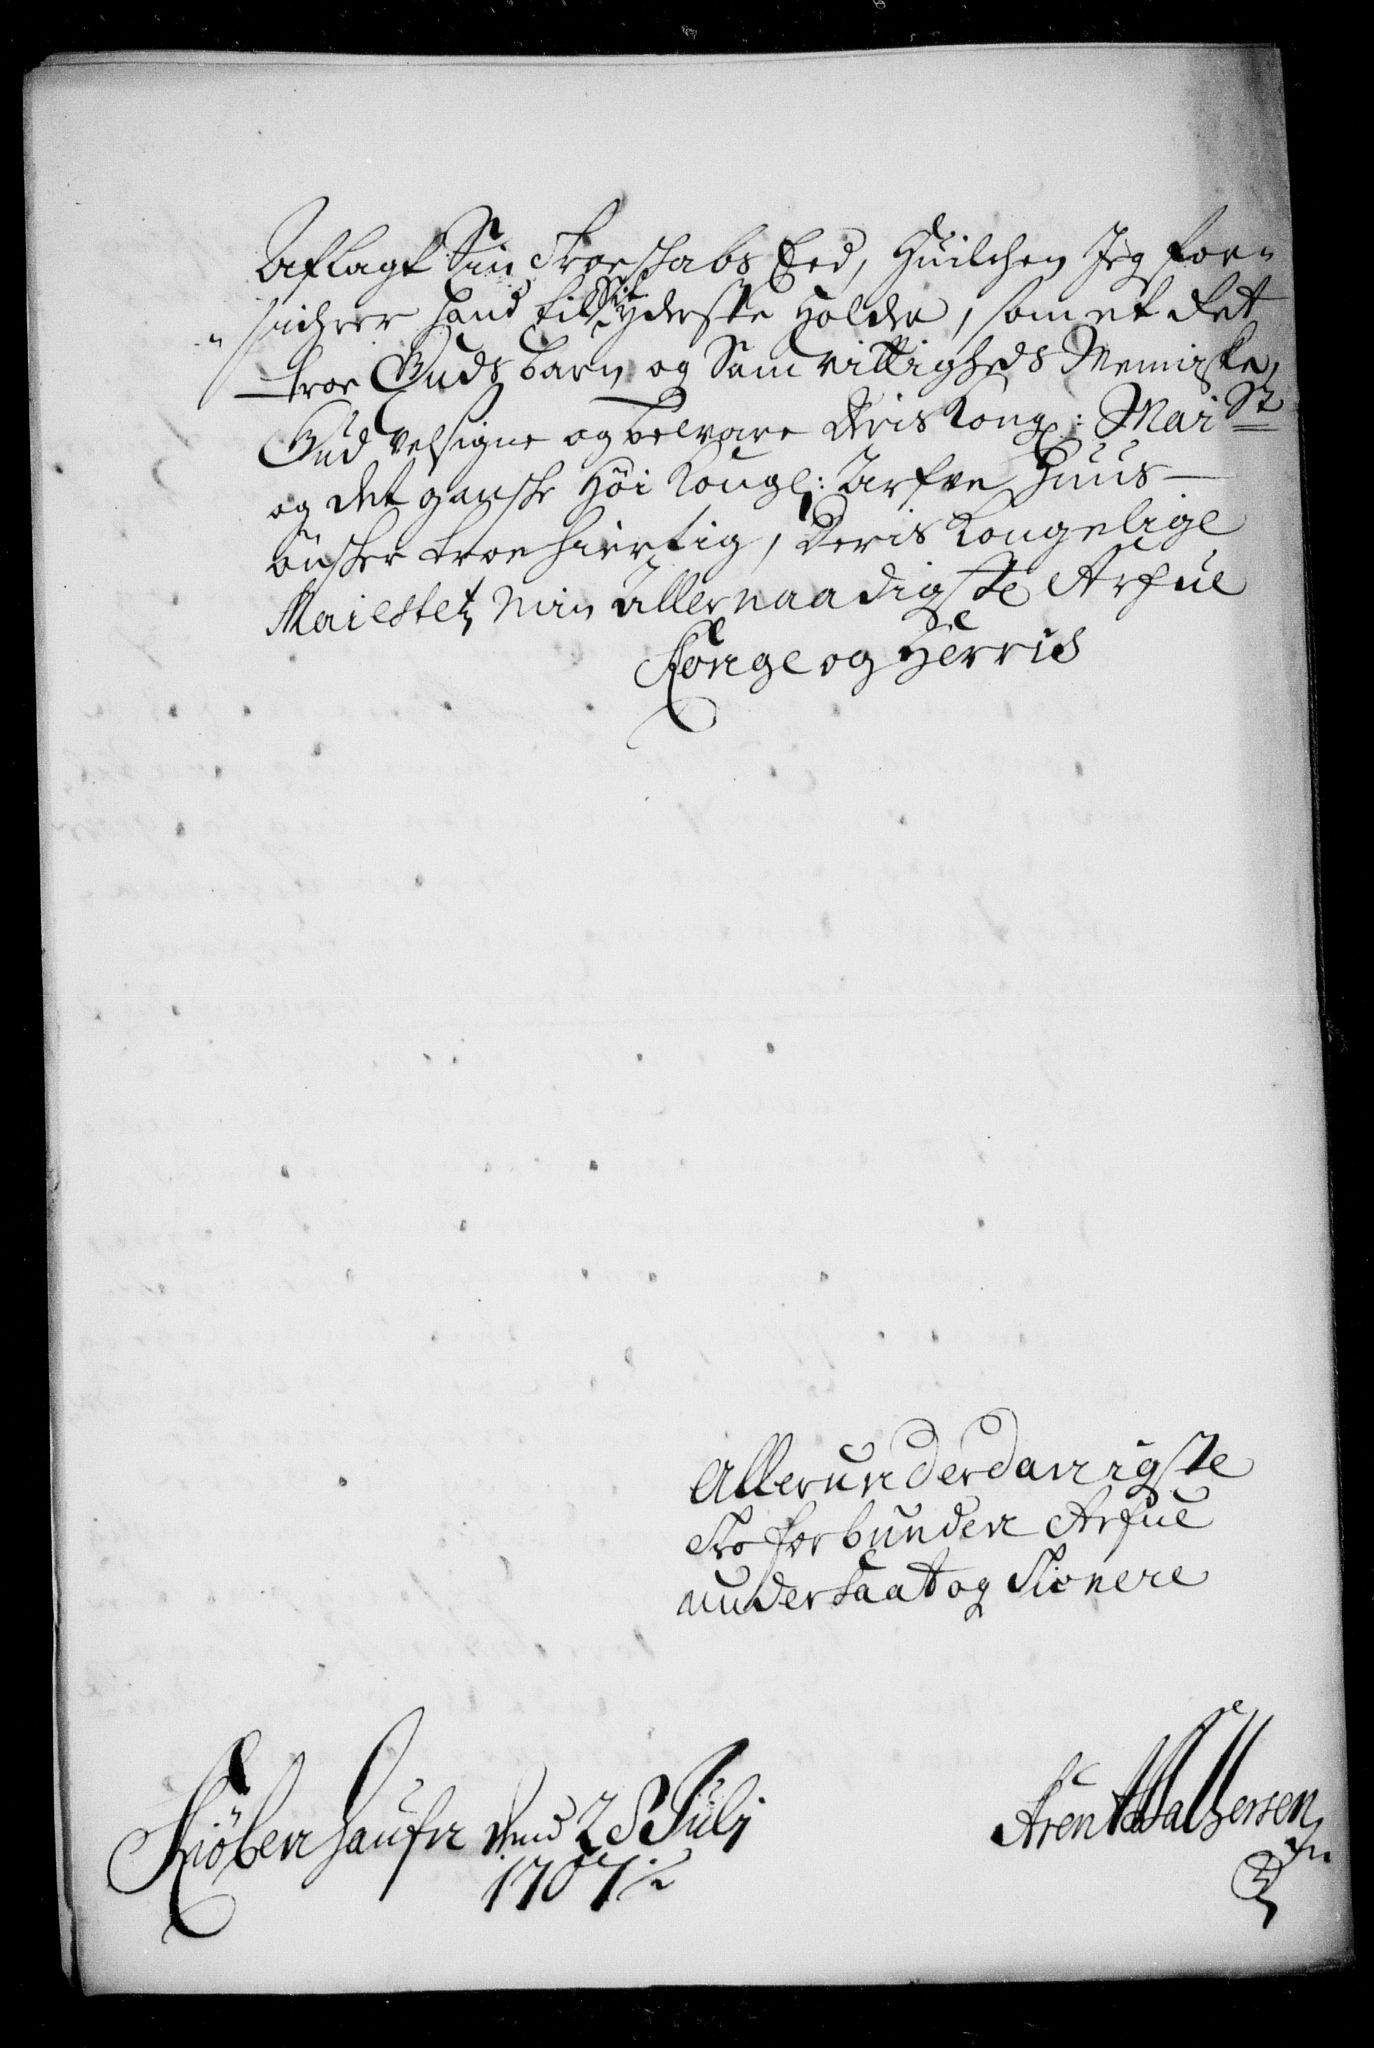 Aflagt Sin Troeskabs Eed, Huilchen Jeg for¬
¬sichrer hand til Sit Yderste Holder, som et Ret
troe Guds barn og Samvittigheds Menniske,
Gud velsigne og bevare Deris Kongl: Maist
og det gansche Høi Kongl: Arfve Huus
ønsker troehiertig, Deris Kongelige
Maiestet min Allernaadigste Arfue
Konge og Herris
Allerunderdanigste
Troforbunden Arfue
undersaat og Tienere
Kiöbenhaufn dend 28 Julj
1707
Arent Walsersen